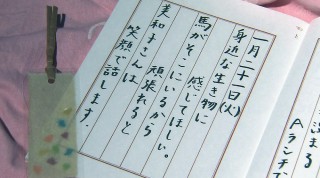 一月二十一日(火)
身近な生き物に
感じてほしい。
馬がそこにいるから
頑張れると
美和子さんは
笑顔で話します。
まる
Aランチで